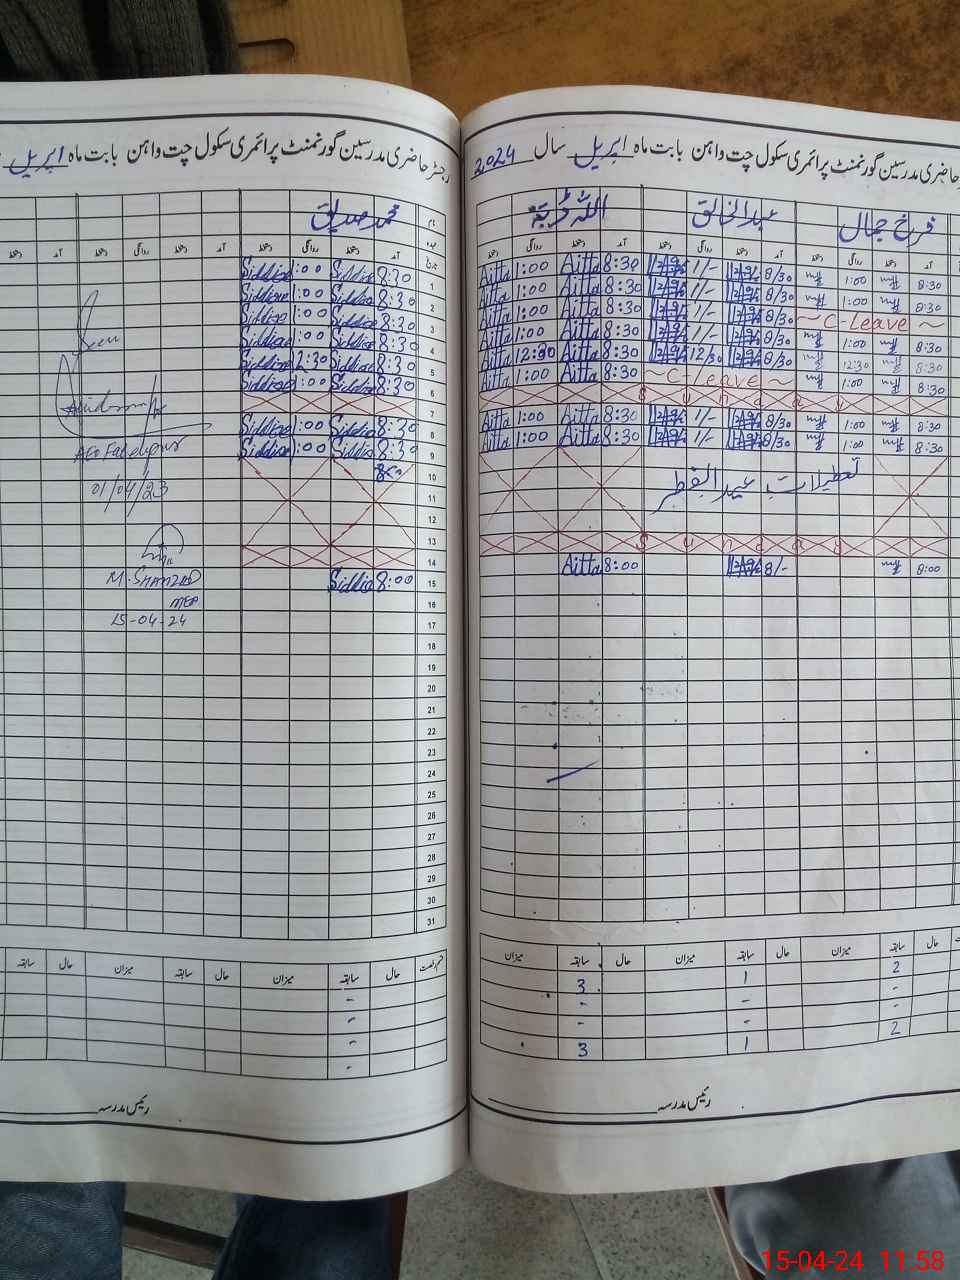 رجسٹر حاضری مدرسین گورنمنٹ پرائمری سکول چت واہن بابت ماہ اپریل سال 2024
فرخ جمال عبدالخالق اللہ ڈتہ
آمد دستخط روانگی دستخط آمد دستخط روانگی دستخط آمد دستخط روانگی دستخط
8:30 1:00 8/30 1/- 8:30 Aitta 1:00 Aitta
8:30 1:00 8/30 1/- 8:30 Aitta 1:00 Aitta
~ C-Leave ~ 8/30 1/- 8:30 Aitta 1:00 Aitta
8:30 1:00 8/30 1/- 8:30 Aitta 1:00 Aitta
8:30 12:30 8/30 12/30 8:30 Aitta 12:30 Aitta
8:30 1:00 ~ C-Leave ~ 8:30 Aitta 1:00 Aitta
Sunday
8:30 1:00 8/30 1/- 8:30 Aitta 1:00 Aitta
8:30 1:00 8/30 1/- 8:30 Aitta 1:00 Aitta
تعطیلات عیدالفطر
Sunday
8:00 8/- 8:00 Aitta
حال سابقہ میزان حال سابقہ میزان حال سابقہ میزان
2 1 3
- - -
- - -
2 1 3
رئیس مدرسہ
رجسٹر حاضری مدرسین گورنمنٹ پرائمری سکول چت واہن بابت ماہ اپریل
نام محمد صدیق
تاریخ آمد دستخط روانگی دستخط آمد دستخط روانگی دستخط آمد دستخط
1 8:30 Siddiq 1:00 Siddiq
2 8:30 Siddiq 1:00 Siddiq
3 8:30 Siddiq 1:00 Siddiq
4 8:30 Siddiq 1:00 Siddiq
5 8:30 Siddiq 12:30 Siddiq
6 8:30 Siddiq 1:00 Siddiq
7
8 8:30 Siddiq 1:00 Siddiq
9 8:30 Siddiq 1:00 Siddiq
10
11
12
13
14
15 8:00 Siddiq
16
17
18
19
20
21
22
23
24
25
26
27
28
29
30
31
AEO
01/04/23
M. SHAHZAD
MEA
15-04-24
قسم رخصت حال سابقہ میزان حال سابقہ میزان حال سابقہ
-
-
-
-
رئیس مدرسہ
15-04-24 11.58